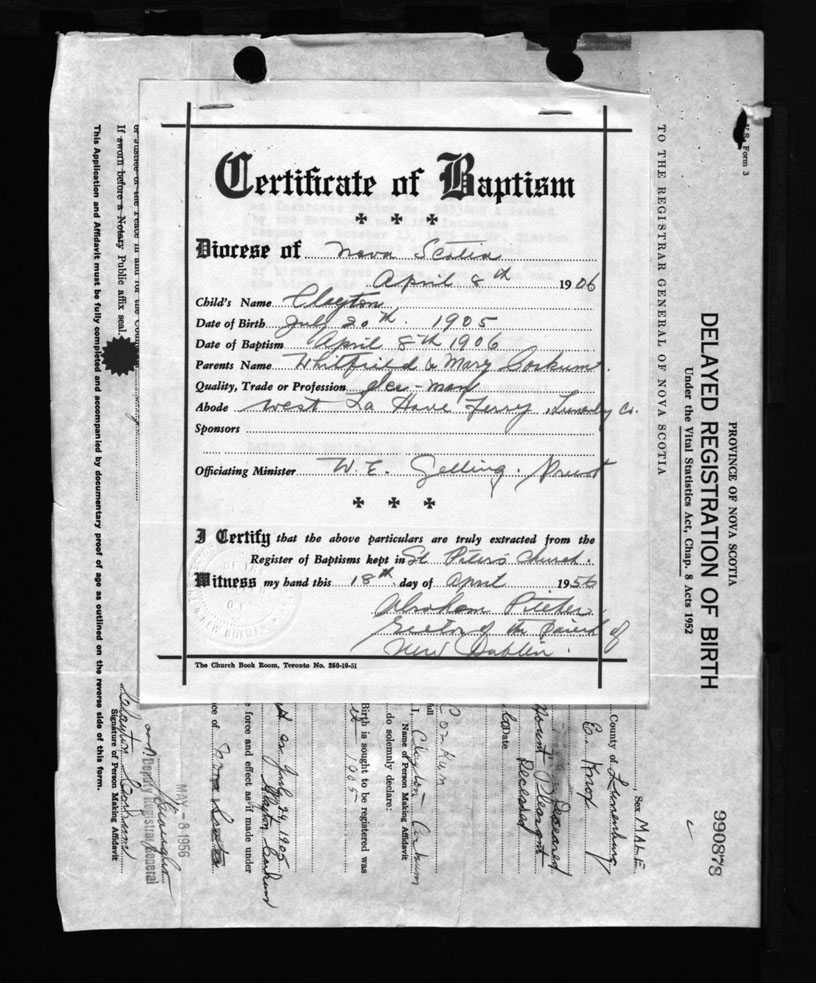 Certificate of Baptism
Diocese of Nova Scotia
April 8th 1906
Child's Name Clayton
Date of Birth July 20th. 1905
Date of Baptism April 8th 1906
Parents Name Whitfield & Mary Corkum.
Quality, Trade or Profession
Abode West La Have Ferry, Lunenburg Co.
Sponsors
Officiating Minister W. E. Gelling. Priest
I Certify that the above particulars are truly extracted from the
Register of Baptisms kept in St Peter's Church.
Witness my hand this 18th day of April 1956
Abraham
Rector of the Parish of
New Dublin.
The Church Book Room, Toronto No. 250-10-51
V.S. Form 3
PROVINCE OF NOVA SCOTIA
DELAYED REGISTRATION OF BIRTH
Under the Vital Statistics Act, Chap. 8 Acts 1952
TO THE REGISTRAR GENERAL OF NOVA SCOTIA
990878
Sex MALE
County of Lunenburg
E. Knox
Deceased
Mount Pleasant
Deceased
Date
full
Corkum
I, Clayton Corkum
Name of Person Making Affidavit
do solemnly declare:
Birth is sought to be registered was
1905
as July 29, 1905
Clayton Corkum
force and effect as if made under
ce of Nova Scotia
MAY - 8 1956
Deputy Registrar General
Clayton Corkum
Signature of Person Making Affidavit
or Justice of the Peace in and for the Coun
If sworn before a Notary Public affix seal.
This Application and Affidavit must be fully completed and accompanied by documentary proof of age as outlined on the reverse side of this form.